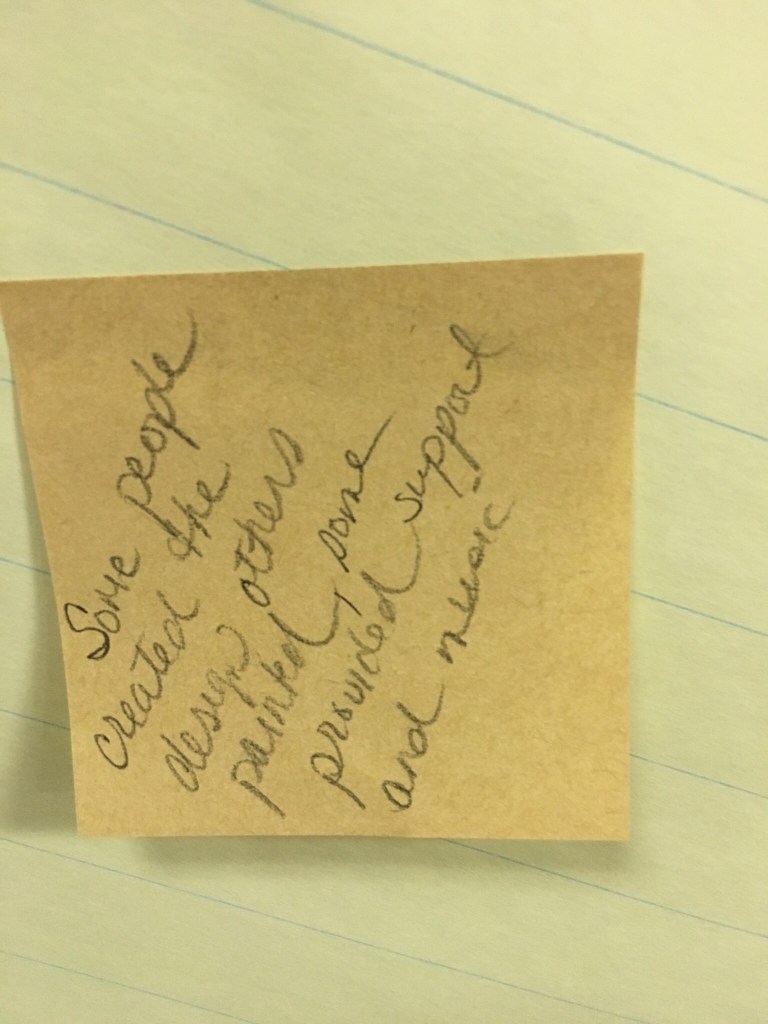 Some people
created the
design others
painted, some
provided support
and music